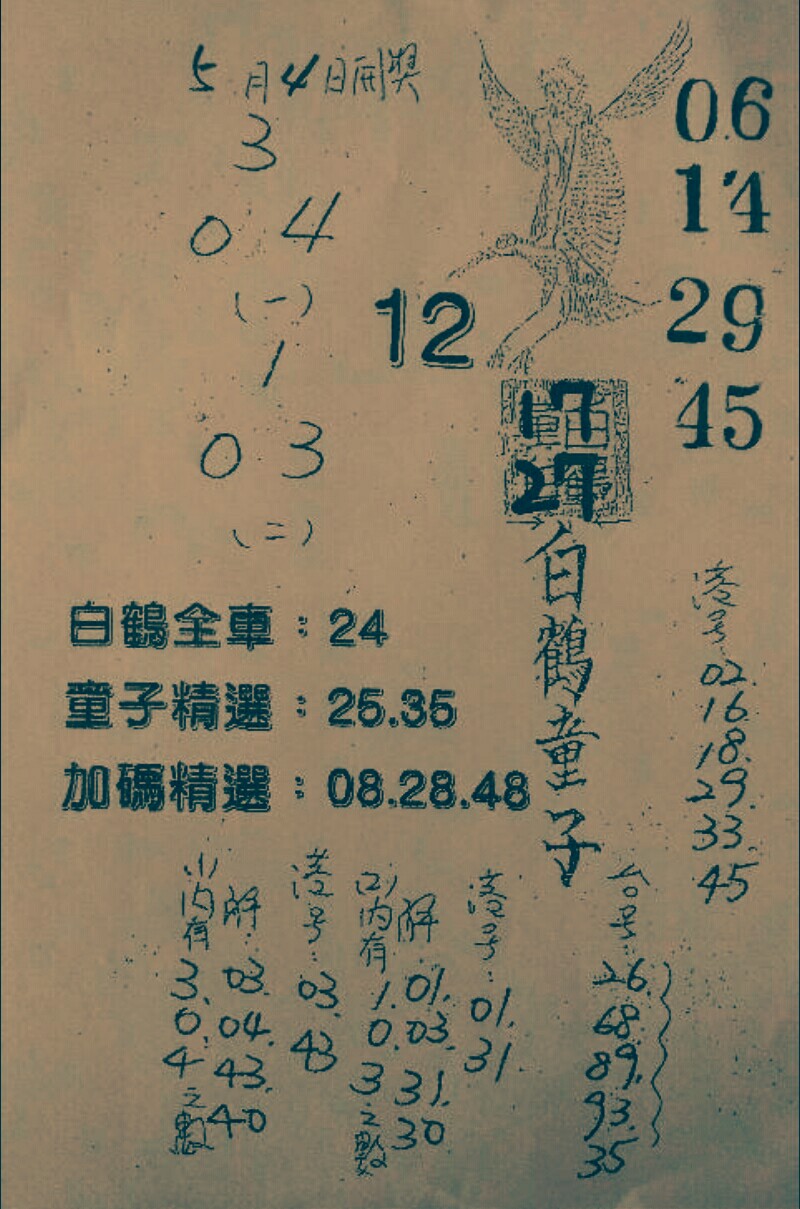 5月4日開獎
3
0 4
(一)
1
0 3
(二)
06
14
29
45
12
17
27
白鶴童子
白鶴全車：24
童子精選：25.35
加碼精選：08.28.48
港号：
02.
16.
18.
29.
33.
45
(1)內有3.0.4之數
解：03.04.43.40
港号：03.43
(2)內有1.0.3之數
解：01.03.31.30
港号：01.31.
台号：
26.
68.
89.
93.
35